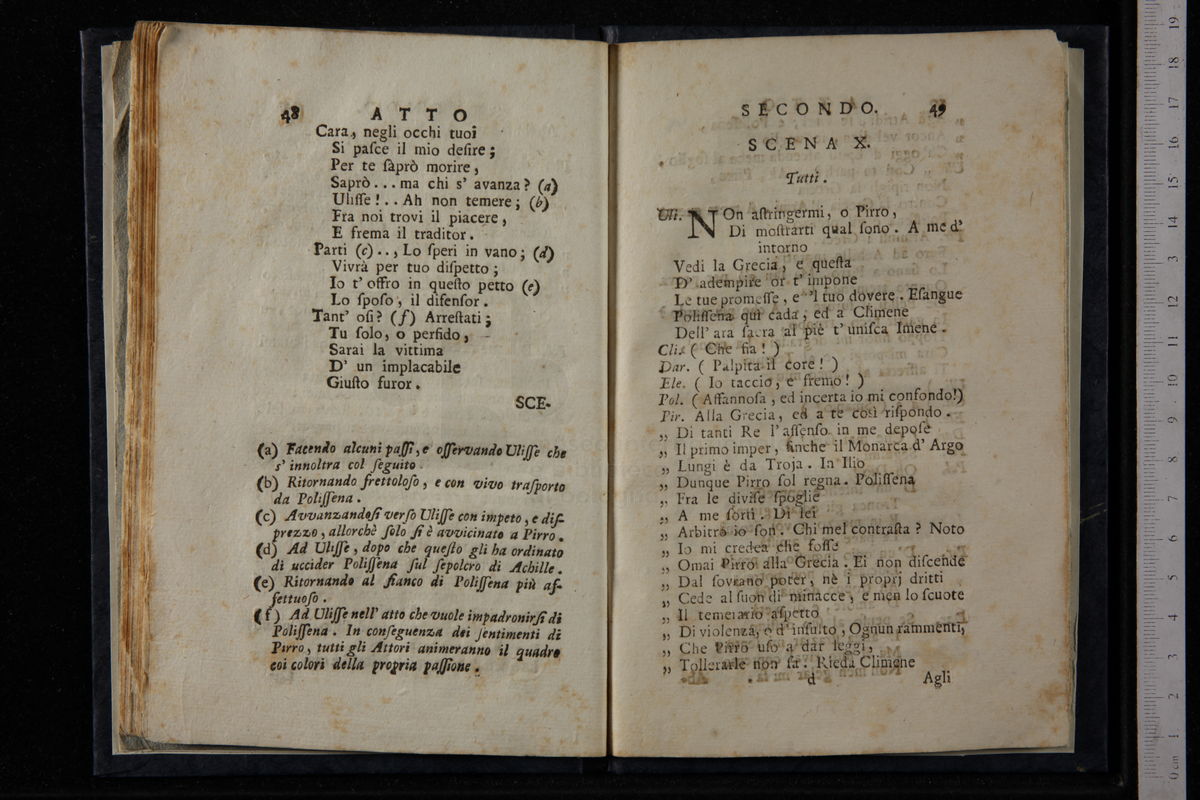 48 ATTO
Cara, negli occhi tuoi
Si paſce il mio deſire;
Per te ſaprò morire,
Saprò... ma chi s' avanza? (a)
Uliſſe!.. Ah non temere; (b)
Fra noi trovi il piacere,
E frema il traditor.
Parti (c).., Lo ſperi in vano; (d)
Vivrà per tuo diſpetto;
Io t' offro in queſto petto (e)
Lo ſpoſo, il difenſor.
Tant' oſi? (f) Arreſtati;
Tu ſolo, o perfido,
Sarai la vittima
D' un implacabile
Giuſto furor.
SCE-
(a) Facendo alcuni paſſi, e oſſervando Uliſſe che
s' innoltra col ſeguito.
(b) Ritornando frettoloſo, e con vivo traſporto
da Poliſſena.
(c) Avvanzandoſi verſo Uliſſe con impeto, e diſ-
prezzo, allorchè ſolo ſi è avvicinato a Pirro.
(d) Ad Uliſſe, dopo che queſto gli ha ordinato
di uccider Poliſſena ſul ſepolcro di Achille.
(e) Ritornando al fianco di Poliſſena più aſ-
fettuoſo.
(f) Ad Uliſſe nell' atto che vuole impadronirſi di
Poliſſena. In conſeguenza dei ſentimenti di
Pirro, tutti gli Attori animeranno il quadro
coi colori della propria paſſione.
SECONDO. 49
SCENA X.
Tutti.
Uli. NOn aſtringermi, o Pirro,
Di moſtrarti qual ſono. A me d'
intorno
Vedi la Grecia, e queſta
D' adempire or t' impone
Le tue promeſſe, e 'l tuo dovere. Eſangue
Poliſſena quì cada, ed a Climene
Dell' ara ſacra al piè t' uniſca Imene.
Cli. ( Che fia! )
Dar. ( Palpita il core! )
Ele. ( Io taccio, e fremo! )
Pol. ( Affannoſa, ed incerta io mi confondo!)
Pir. Alla Grecia, ed a te così riſpondo.
„ Di tanti Re l' aſſenſo in me depoſe
„ Il primo imper, finche il Monarca d' Argo
„ Lungi è da Troja. In Ilio
„ Dunque Pirro ſol regna. Poliſſena
„ Fra le diviſe ſpoglie
„ A me ſortì. Di lei
„ Arbitro io ſon. Chi mel contraſta? Noto
„ Io mi credea che foſſe
„ Omai Pirro alla Grecia. Ei non diſcende
„ Dal ſovrano poter, nè i proprj dritti
„ Cede al ſuon di minacce, e men lo ſcuote
„ Il temerario aſpetto
„ Di violenza, o d' inſulto, Ognun rammenti,
„ Che Pirro uſo a dar leggi,
„ Tollerarle non ſa. Rieda Climene
d Agli
0 cm 1 2 3 4 5 6 7 8 9 10 11 12 13 14 15 16 17 18 19